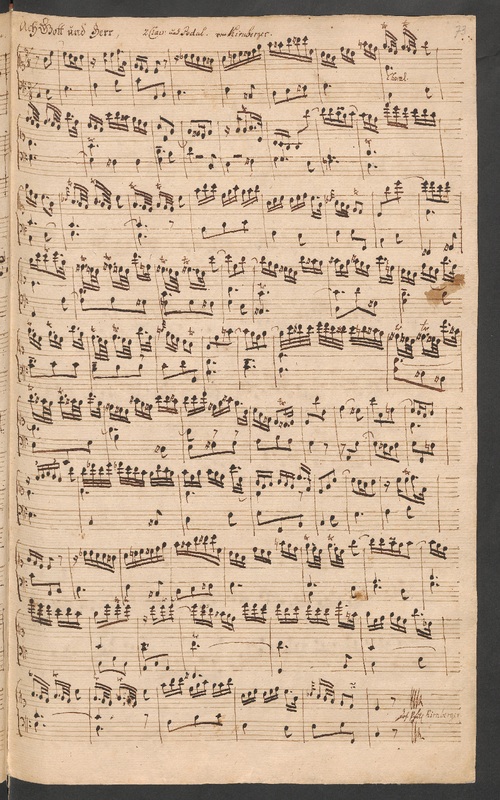 Ach Gott und Herr, 2 Clav. und Pedal. von Kirnberger.
Choral.
Kirnberger